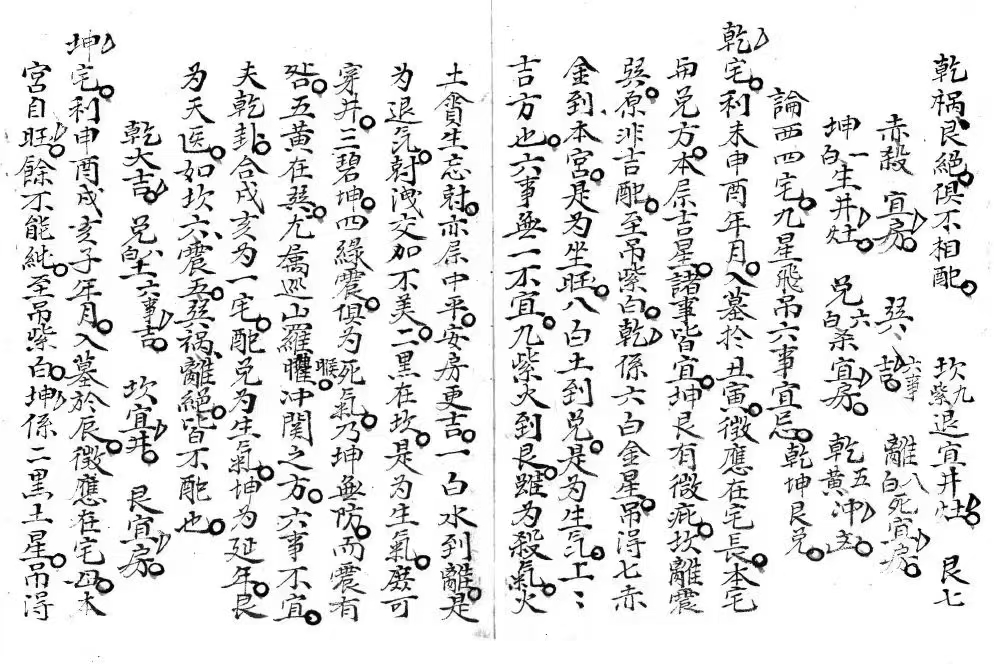 乾禍艮絕俱不相配。 坎九紫退宜井灶 艮七
赤殺宜房。 巽六事吉 離八白死宜房。
坤一白生井灶。 兌六白宜房。 乾五黃冲
論西四宅九星飛吊六事宜忌。乾坤艮兌
乾宅。利未申酉年月。入墓於丑寅。徵應在宅長。本宅
與兌方。本屬吉星。諸事皆宜。坤艮有微疵。坎離震
巽原非吉配。至吊紫白。乾係六白金星。吊得七赤
金到本宮。是為坐旺。八白土到兌。是為生氣。上:
吉方也。六事無一不宜。九紫火到艮。雖為殺氣。火
土貪生忘尅。亦屬中平。安房更吉。一白水到離。是
為退氣。尅洩交加不美。二黑在坎。是為生氣。庶可
穿井。三碧坤四綠震。俱為死氣。乃坤無防。而震有
咎。五黃在巽。九為巡山羅㬋。冲関之方。六事不宜。
夫乾卦。合戌亥為一宅。配兌為生氣。坤為延年。艮
为天医。如坎六。震五。巽禍。離絕。皆不配也。
乾大吉。 兌八白六事吉。 坎宜井。 艮宜房。
坤宅。利申酉戌亥子年月。入墓於辰。徵應在宅母。本
宮自旺。餘不能純。至吊紫白。坤係二黑土星。吊得